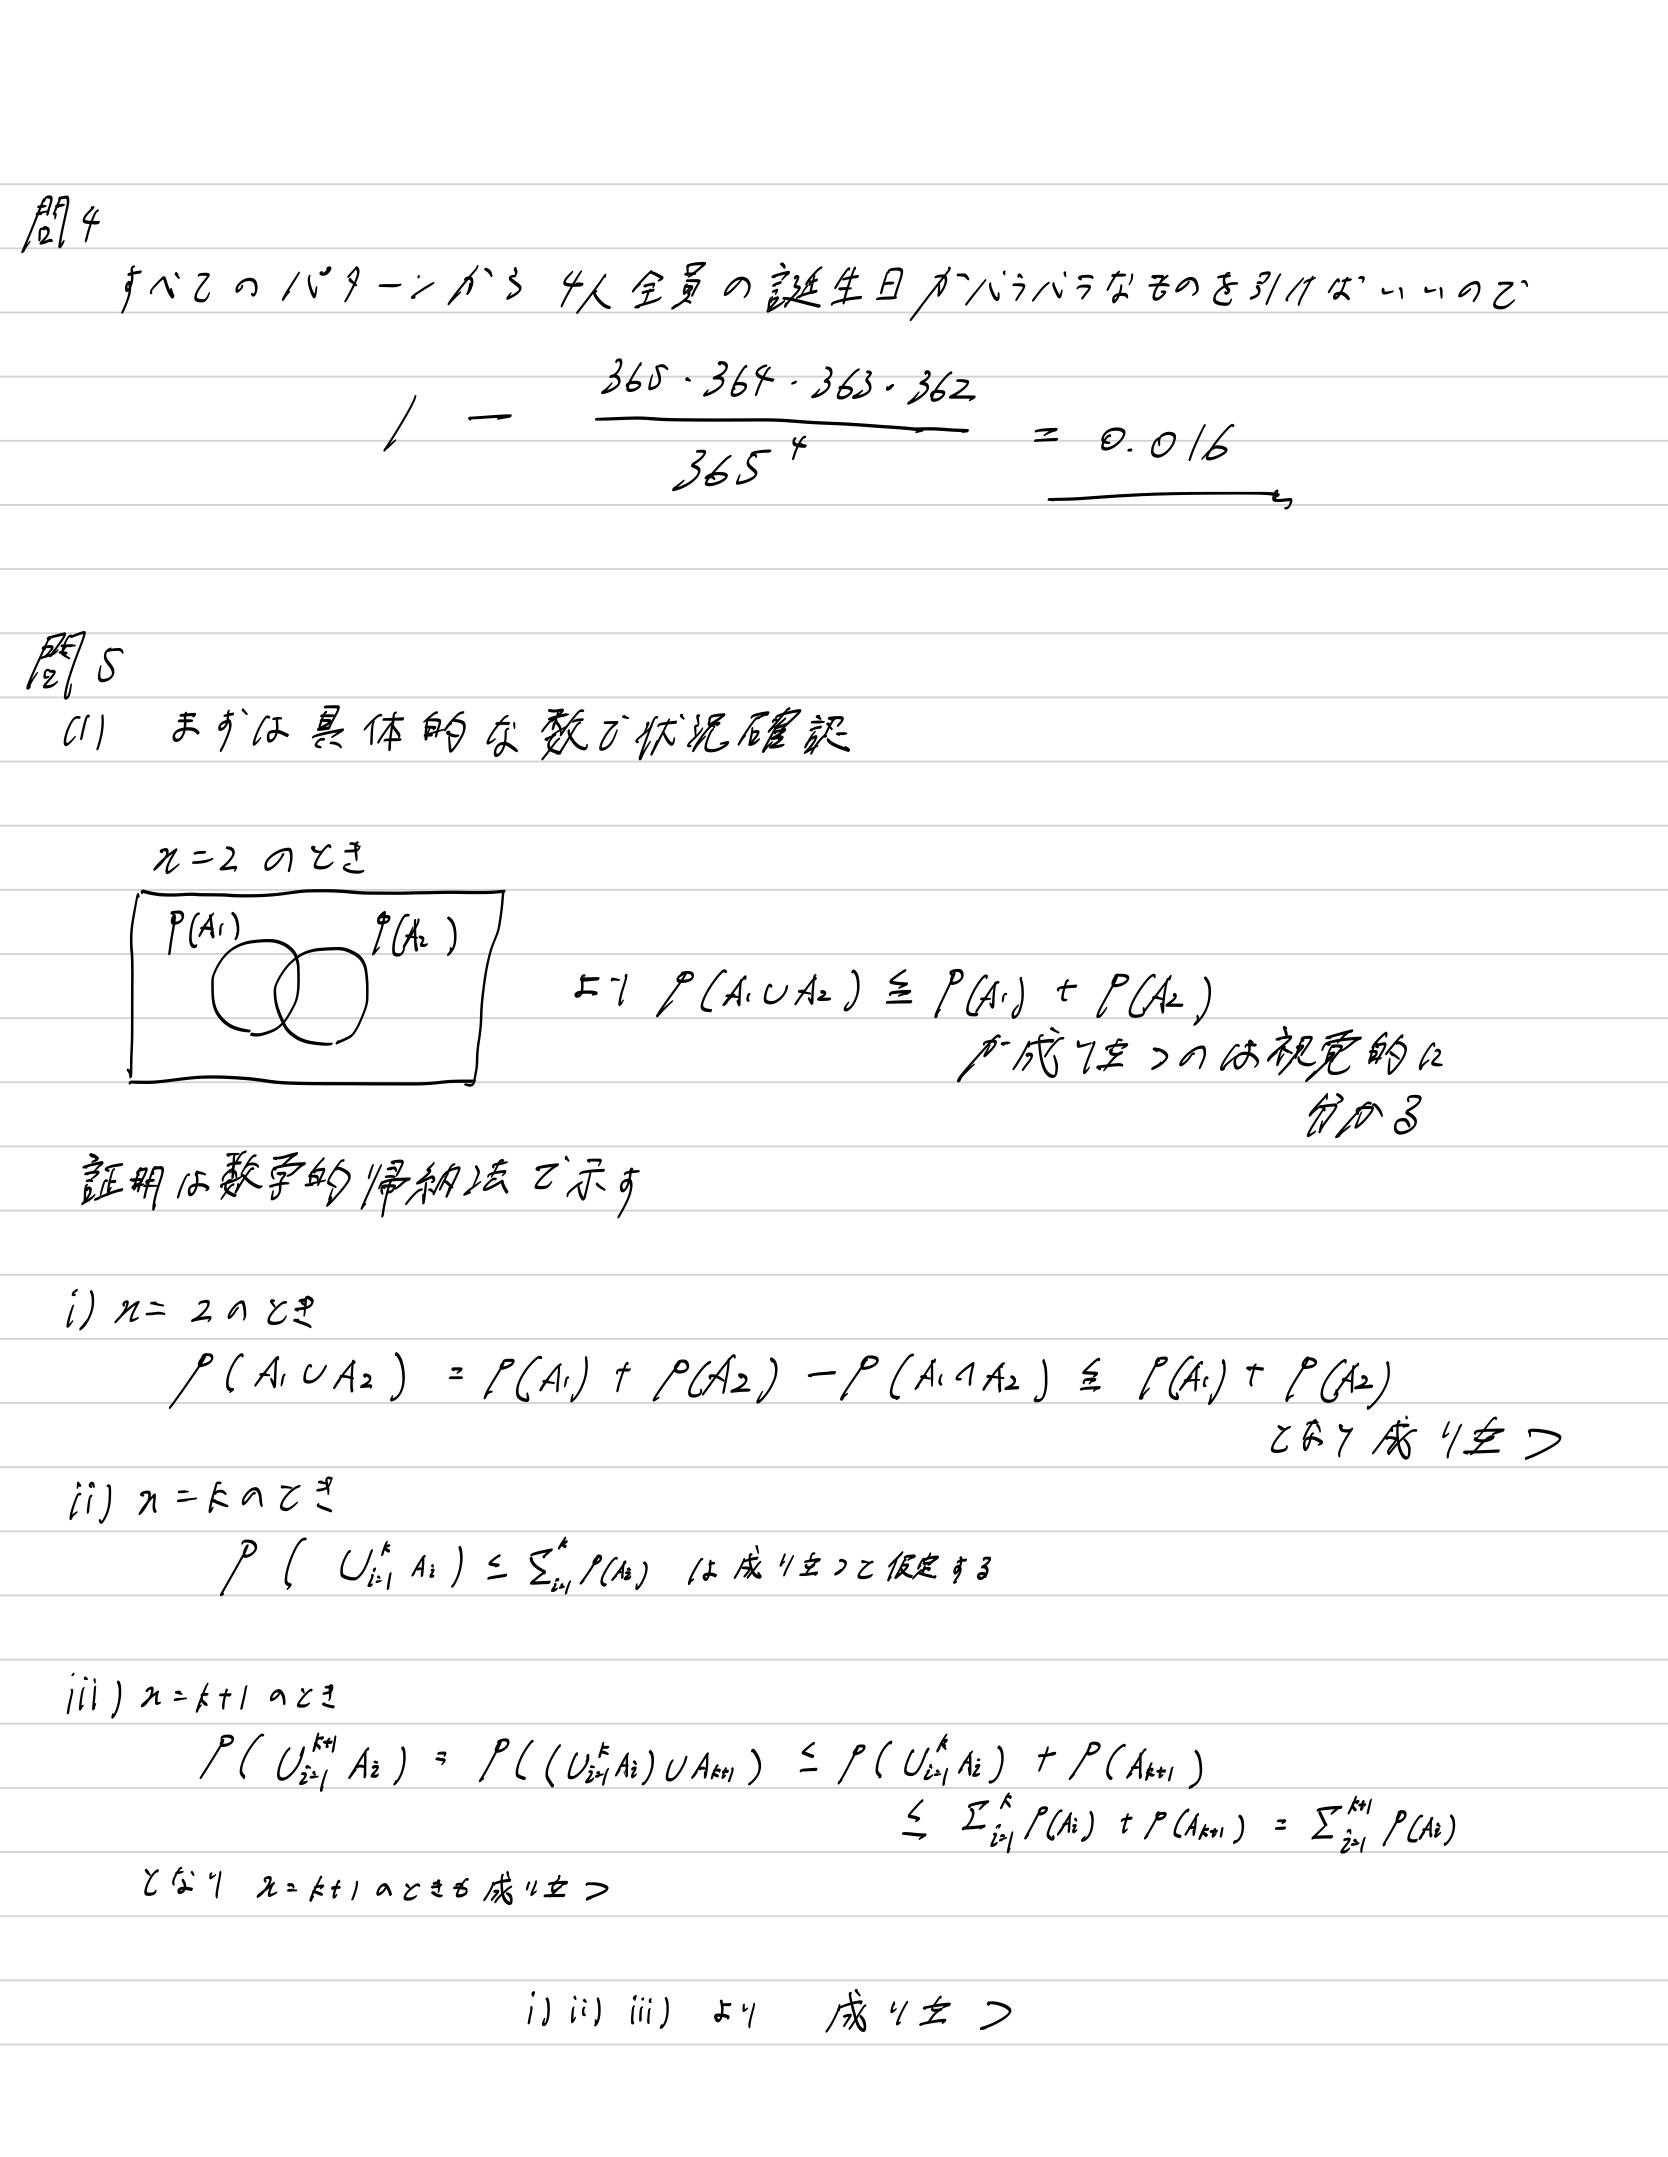 問4
すべてのパターンから4人全員の誕生日がバラバラなものを引けばいいので
1 - 365・364・363・362 / 365^4 = 0.016
問5
(1) まずは具体的な数で状況確認
n=2 のとき
P(A₁) P(A₂)
より P(A₁∪A₂) ≦ P(A₁) + P(A₂)
が成り立つのは視覚的に
分かる
証明は数学的帰納法で示す
i) n=2のとき
P(A₁∪A₂) = P(A₁) + P(A₂) - P(A₁∩A₂) ≦ P(A₁) + P(A₂)
となり成り立つ
ii) n=kのとき
P(∪_{i=1}^{k} A_i) ≤ Σ_{i=1}^{k} P(A_i) は成り立つと仮定する
iii) n=k+1のとき
P(∪_{i=1}^{k+1} A_i) = P((∪_{i=1}^{k} A_i)∪A_{k+1}) ≤ P(∪_{i=1}^{k} A_i) + P(A_{k+1})
≤ Σ_{i=1}^{k} P(A_i) + P(A_{k+1}) = Σ_{i=1}^{k+1} P(A_i)
となり n=k+1のときも成り立つ
i) ii) iii) より 成り立つ